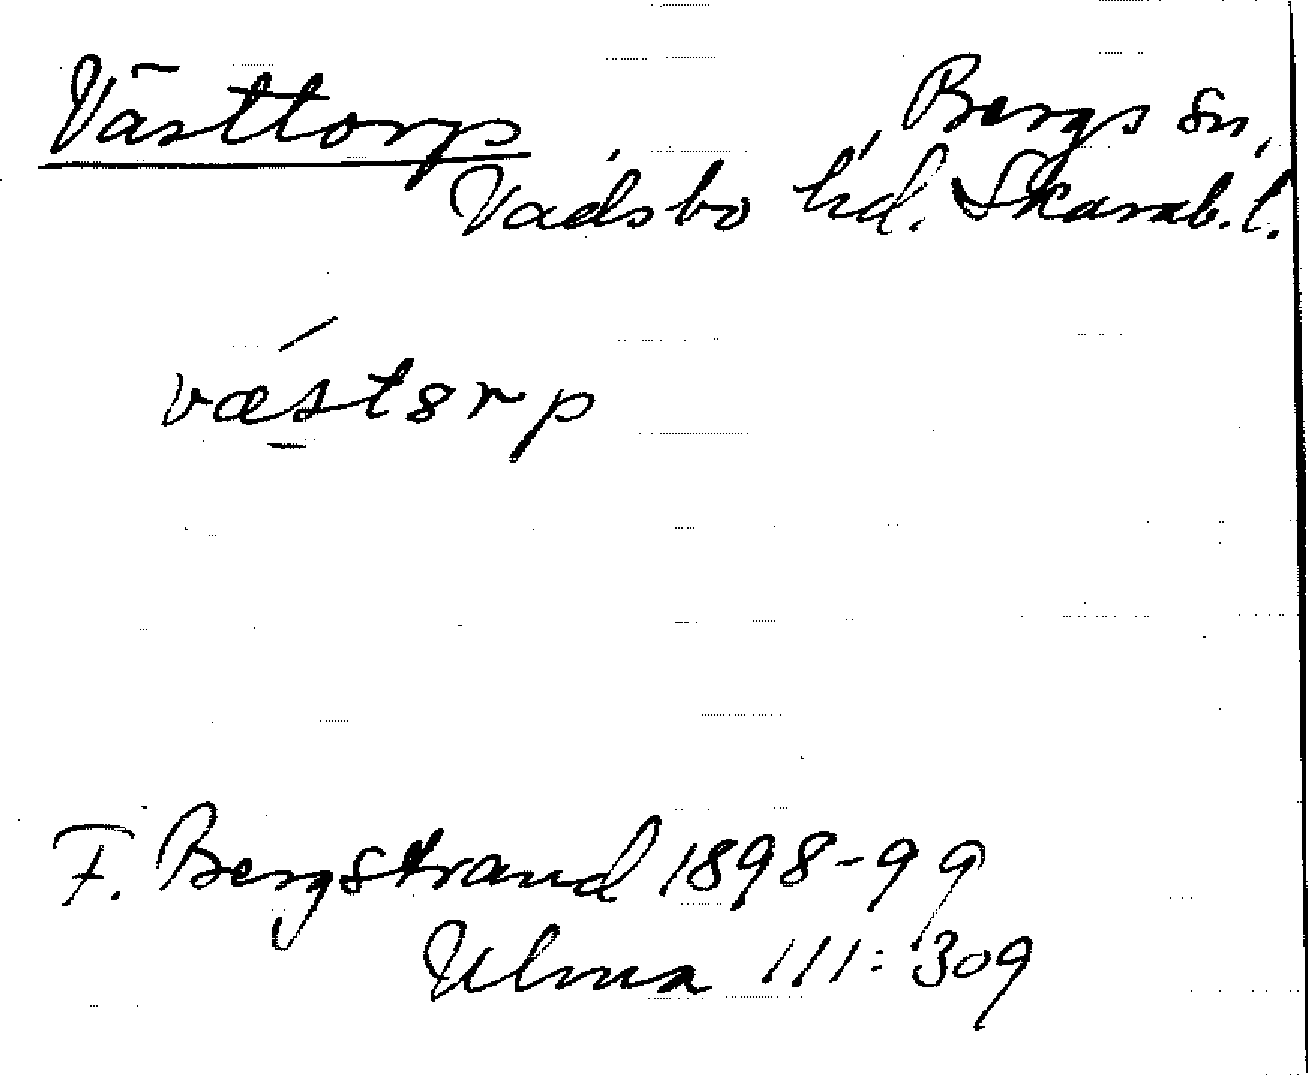 Västtorp Bergs sn,
Vadsbo hd. Skarab. l.
væstorp
F. Bergstrand 1898-99
Ulma 111:309